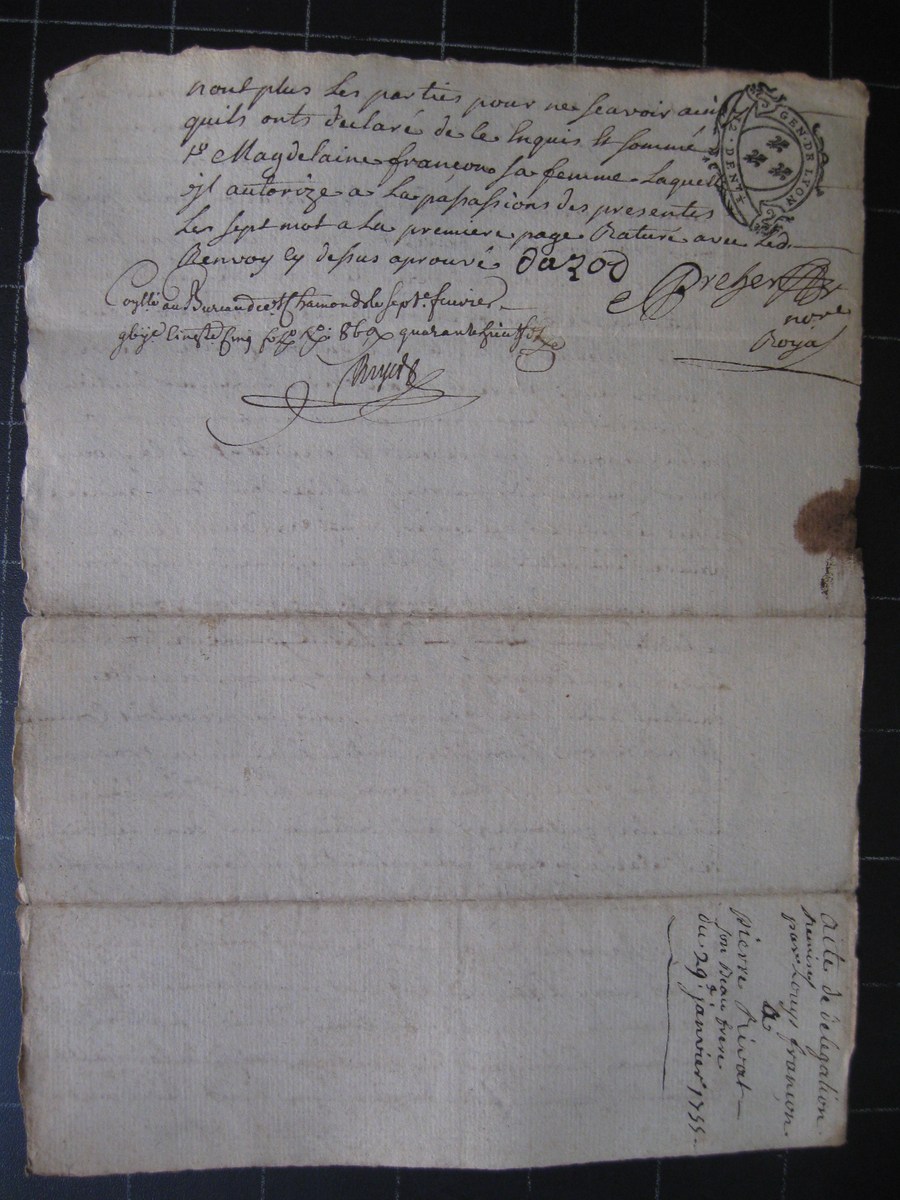 nont plus les parties pour ne scavoir ain
quils onts declaré de ce Enquis Et sommé
Magdelaine françon sa femme Laquel
il autorize a La passassions des presentes
Les sept mot a La premiere page Raturé avec Led.
Renvoy cy dessus aprouvé Dazod
nore
Royal
au Bureau de St Chamond le sept.e fevrier
Cinq quarante huit
GEN. DE LYON
Acte de delegation
Remises
par Louys françon
a
pierre Rivat
son beau frere
du 29e janvier 1755